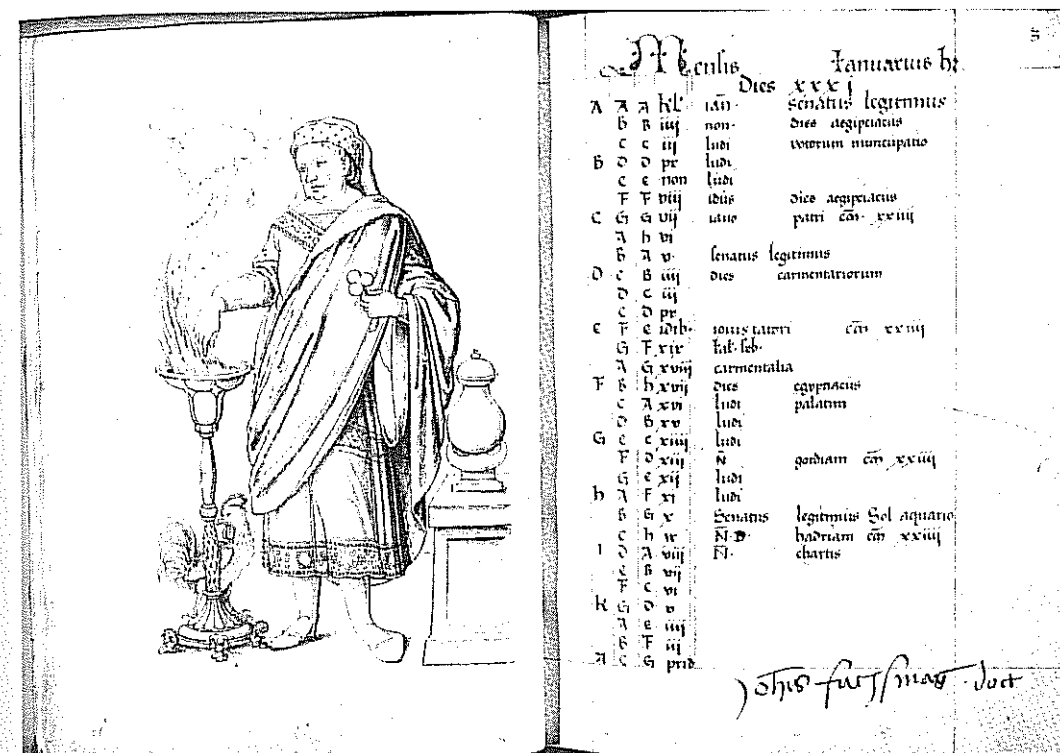 Mensis Ianuarius h
Dies xxxj
A A A kl' ian· Senatus legitimus
b B iiij non· dies aegipciacus
c c iij ludi votorum nuncupatio
B D D pr ludi
e e non ludi
F F viij idus dies aegipciacus
C G G vij iano patri c̄m· xxiiij
A h vi
B A v· senatus legitimus
D c B iiij dies carmentariorum
D c iij
e D pr
e F e idib· iouis tatori c̄m xxiiij
G F xix
A G xviij carmentalia
F B h xvij dies egyptiacus
c A xvi ludi palatini
D B xv ludi
G e c xiiij ludi
F D xiij N̄ gordiani c̄m xxiiij
G e xij ludi
h A F xi ludi
B G x Senatus legitimus Sol aquario
c h ix N̄· hadriani c̄m xxiiij
I D A viij N̄· chartis
e B vij
F c vi
K G D v
A e iiij
B F iij
A C G prid